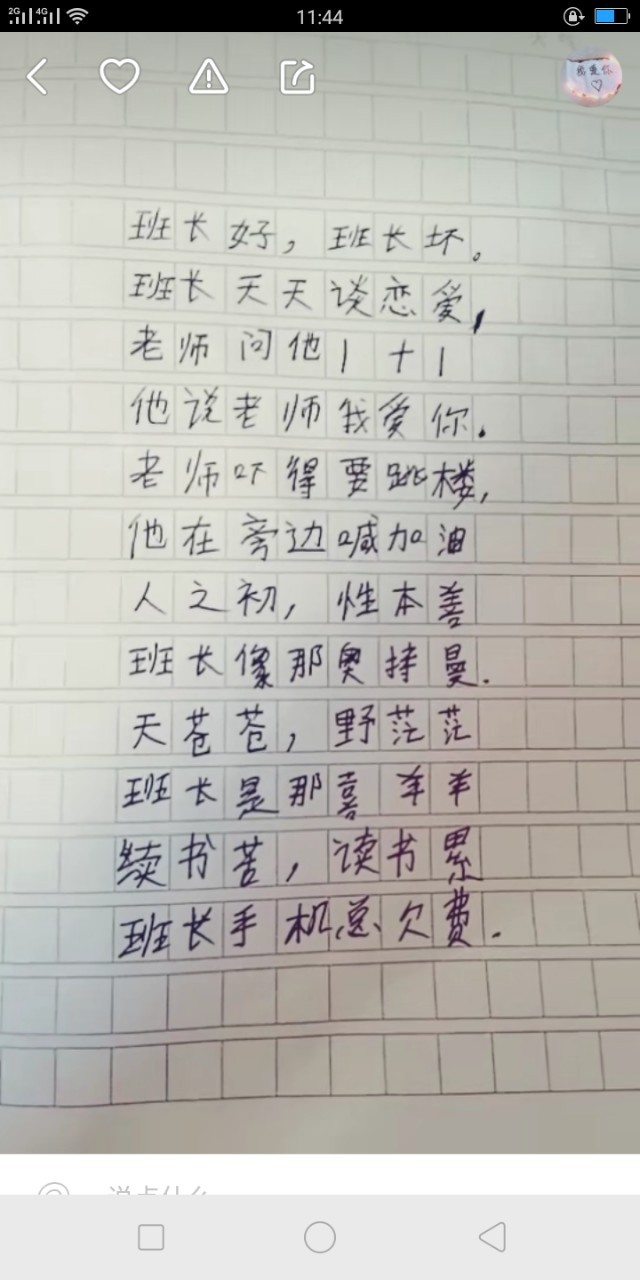 2G 4G 11:44
班长好，班长坏。
班长天天谈恋爱，
老师问他1+1
他说老师我爱你.
老师吓得要跳楼,
他在旁边喊加油
人之初，性本善
班长像那奥特曼.
天苍苍，野茫茫
班长是那喜羊羊
续书苦，读书累
班长手机总欠费.